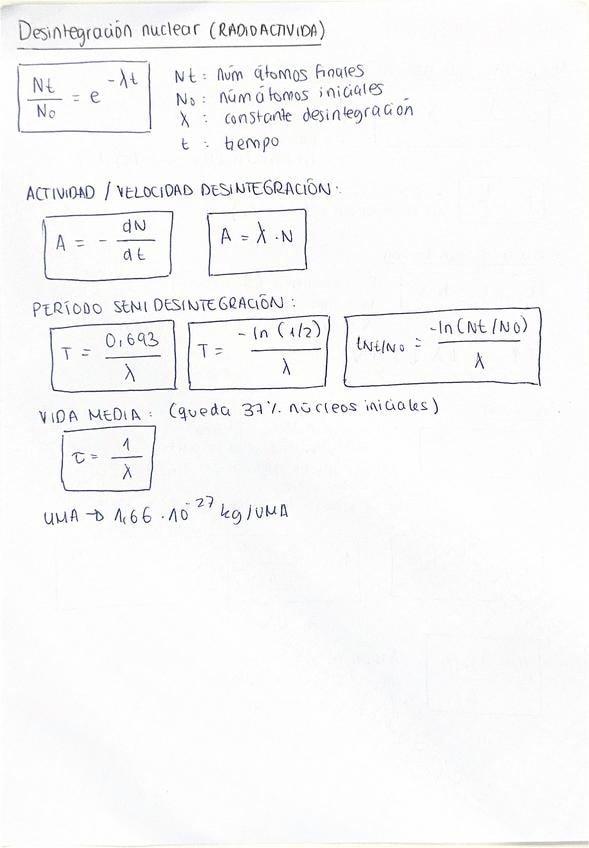 Desintegración nuclear (RADIOACTIVIDA)
Nt/No = e^-λt
Nt : núm átomos finales
No : núm átomos iniciales
λ : constante desintegración
t : tiempo
ACTIVIDAD / VELOCIDAD DESINTEGRACIÓN:
A = - dN/dt
A = λ · N
PERÍODO SEMIDESINTEGRACIÓN:
T = 0,693/λ
T = -ln (1/2)/λ
tNt/No = -ln(Nt/No)/λ
VIDA MEDIA: (queda 37% núcleos iniciales)
τ = 1/λ
UMA → 1,66 · 10^-27 kg/UMA